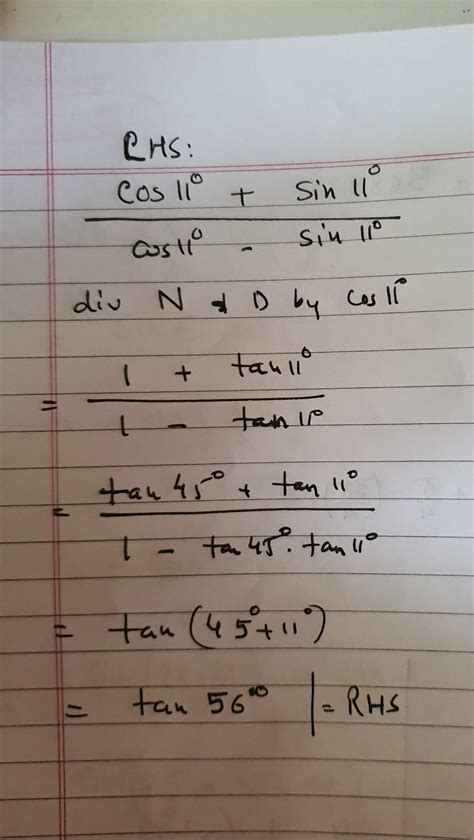 LHS:
cos 11° + sin 11°
cos 11° - sin 11°
div N & D by cos 11°
1 + tan 11°
=
1 - tan 11°
tan 45° + tan 11°
=
1 - tan 45° . tan 11°
= tan (45° + 11°)
= tan 56° | = RHS